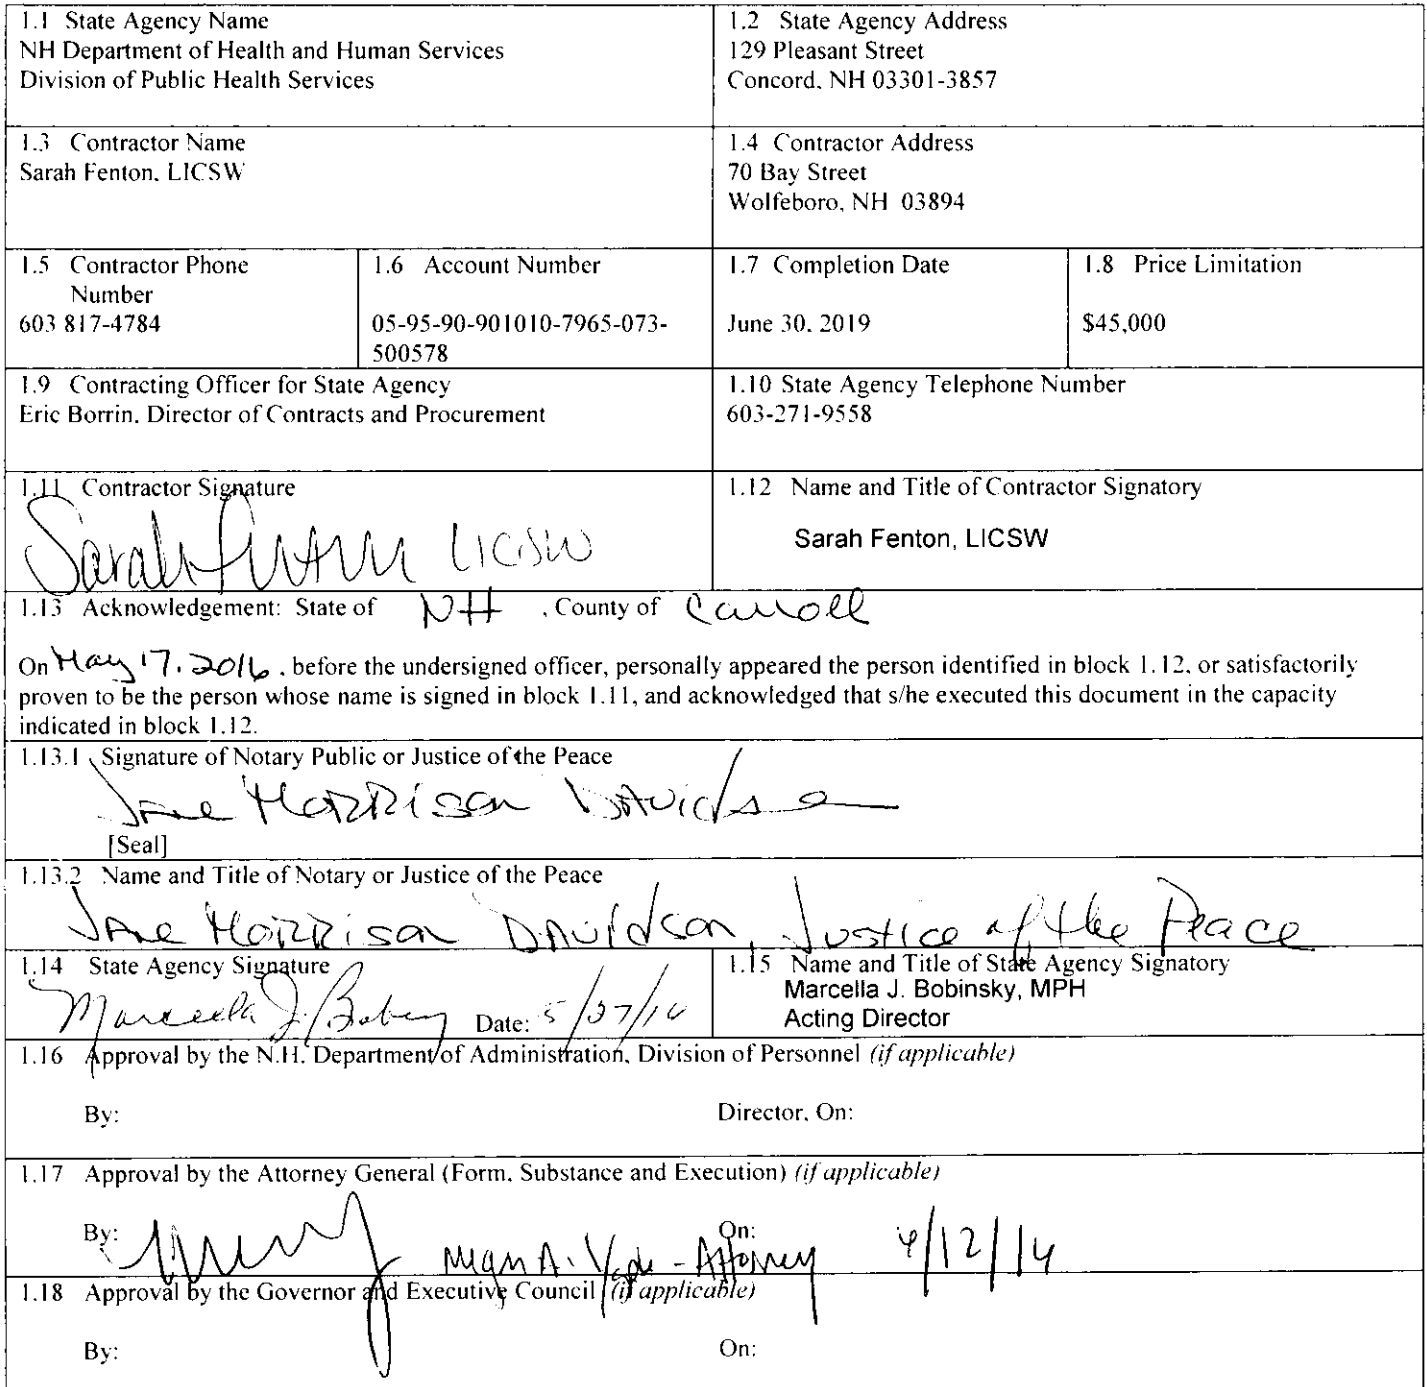 1.1 State Agency Name
NH Department of Health and Human Services
Division of Public Health Services
1.2 State Agency Address
129 Pleasant Street
Concord, NH 03301-3857
1.3 Contractor Name
Sarah Fenton, LICSW
1.4 Contractor Address
70 Bay Street
Wolfeboro, NH 03894
1.5 Contractor Phone
Number
603 817-4784
1.6 Account Number
05-95-90-901010-7965-073-
500578
1.7 Completion Date
June 30, 2019
1.8 Price Limitation
$45,000
1.9 Contracting Officer for State Agency
Eric Borrin, Director of Contracts and Procurement
1.10 State Agency Telephone Number
603-271-9558
1.11 Contractor Signature
Sarah Fenton LICSW
1.12 Name and Title of Contractor Signatory
Sarah Fenton, LICSW
1.13 Acknowledgement: State of NH , County of Carroll
On May 17, 2016 , before the undersigned officer, personally appeared the person identified in block 1.12, or satisfactorily
proven to be the person whose name is signed in block 1.11, and acknowledged that s/he executed this document in the capacity
indicated in block 1.12.
1.13.1 Signature of Notary Public or Justice of the Peace
Jane Morrison Davidson
[Seal]
1.13.2 Name and Title of Notary or Justice of the Peace
Jane Morrison Davidson, Justice of the Peace
1.14 State Agency Signature
Marcella J. Bobinsky Date: 5/27/16
1.15 Name and Title of State Agency Signatory
Marcella J. Bobinsky, MPH
Acting Director
1.16 Approval by the N.H. Department of Administration, Division of Personnel (if applicable)
By:
Director, On:
1.17 Approval by the Attorney General (Form, Substance and Execution) (if applicable)
By:
On:
A. - Attorney /12/16
1.18 Approval by the Governor and Executive Council (if applicable)
By:
On: